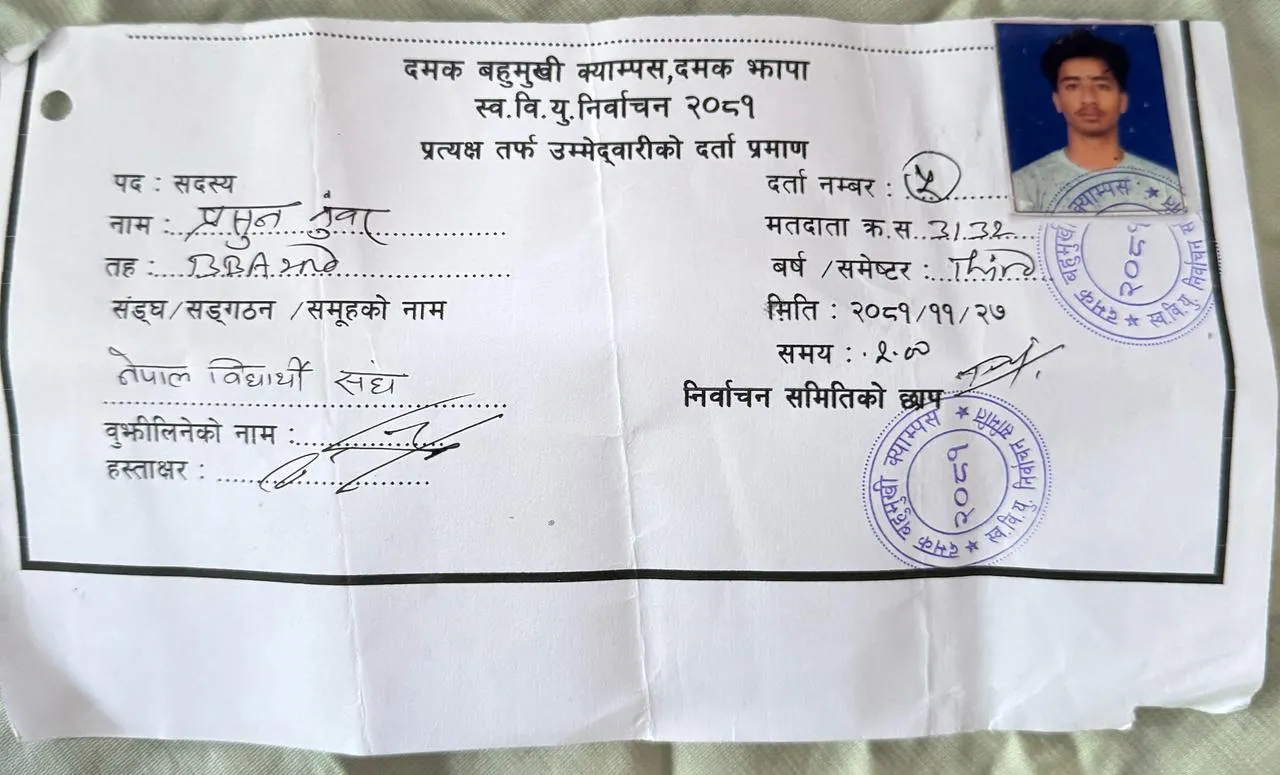 दमक बहुमुखी क्याम्पस,दमक झापा
स्व.वि.यु.निर्वाचन २०८१
प्रत्यक्ष तर्फ उम्मेद्वारीको दर्ता प्रमाण
पद : सदस्य
दर्ता नम्बर : ५
नाम : प्रसुन
मतदाता क्र.स. 3132
तह : BBA
बर्ष /समेष्टर : Third
संङ्घ/सङ्गठन /समूहको नाम
मिति : २०८१/११/२७
समय : २.००
नेपाल विद्यार्थी संघ
निर्वाचन समितिको छाप
वुझीलिनेको नाम :
हस्ताक्षर :
दमक बहुमुखी क्याम्पस ★ स्व.वि.यु. निर्वाचन
२०८१
दमक बहुमुखी क्याम्पस ★ स्व.वि.यु. निर्वाचन समिति ★
२०८१